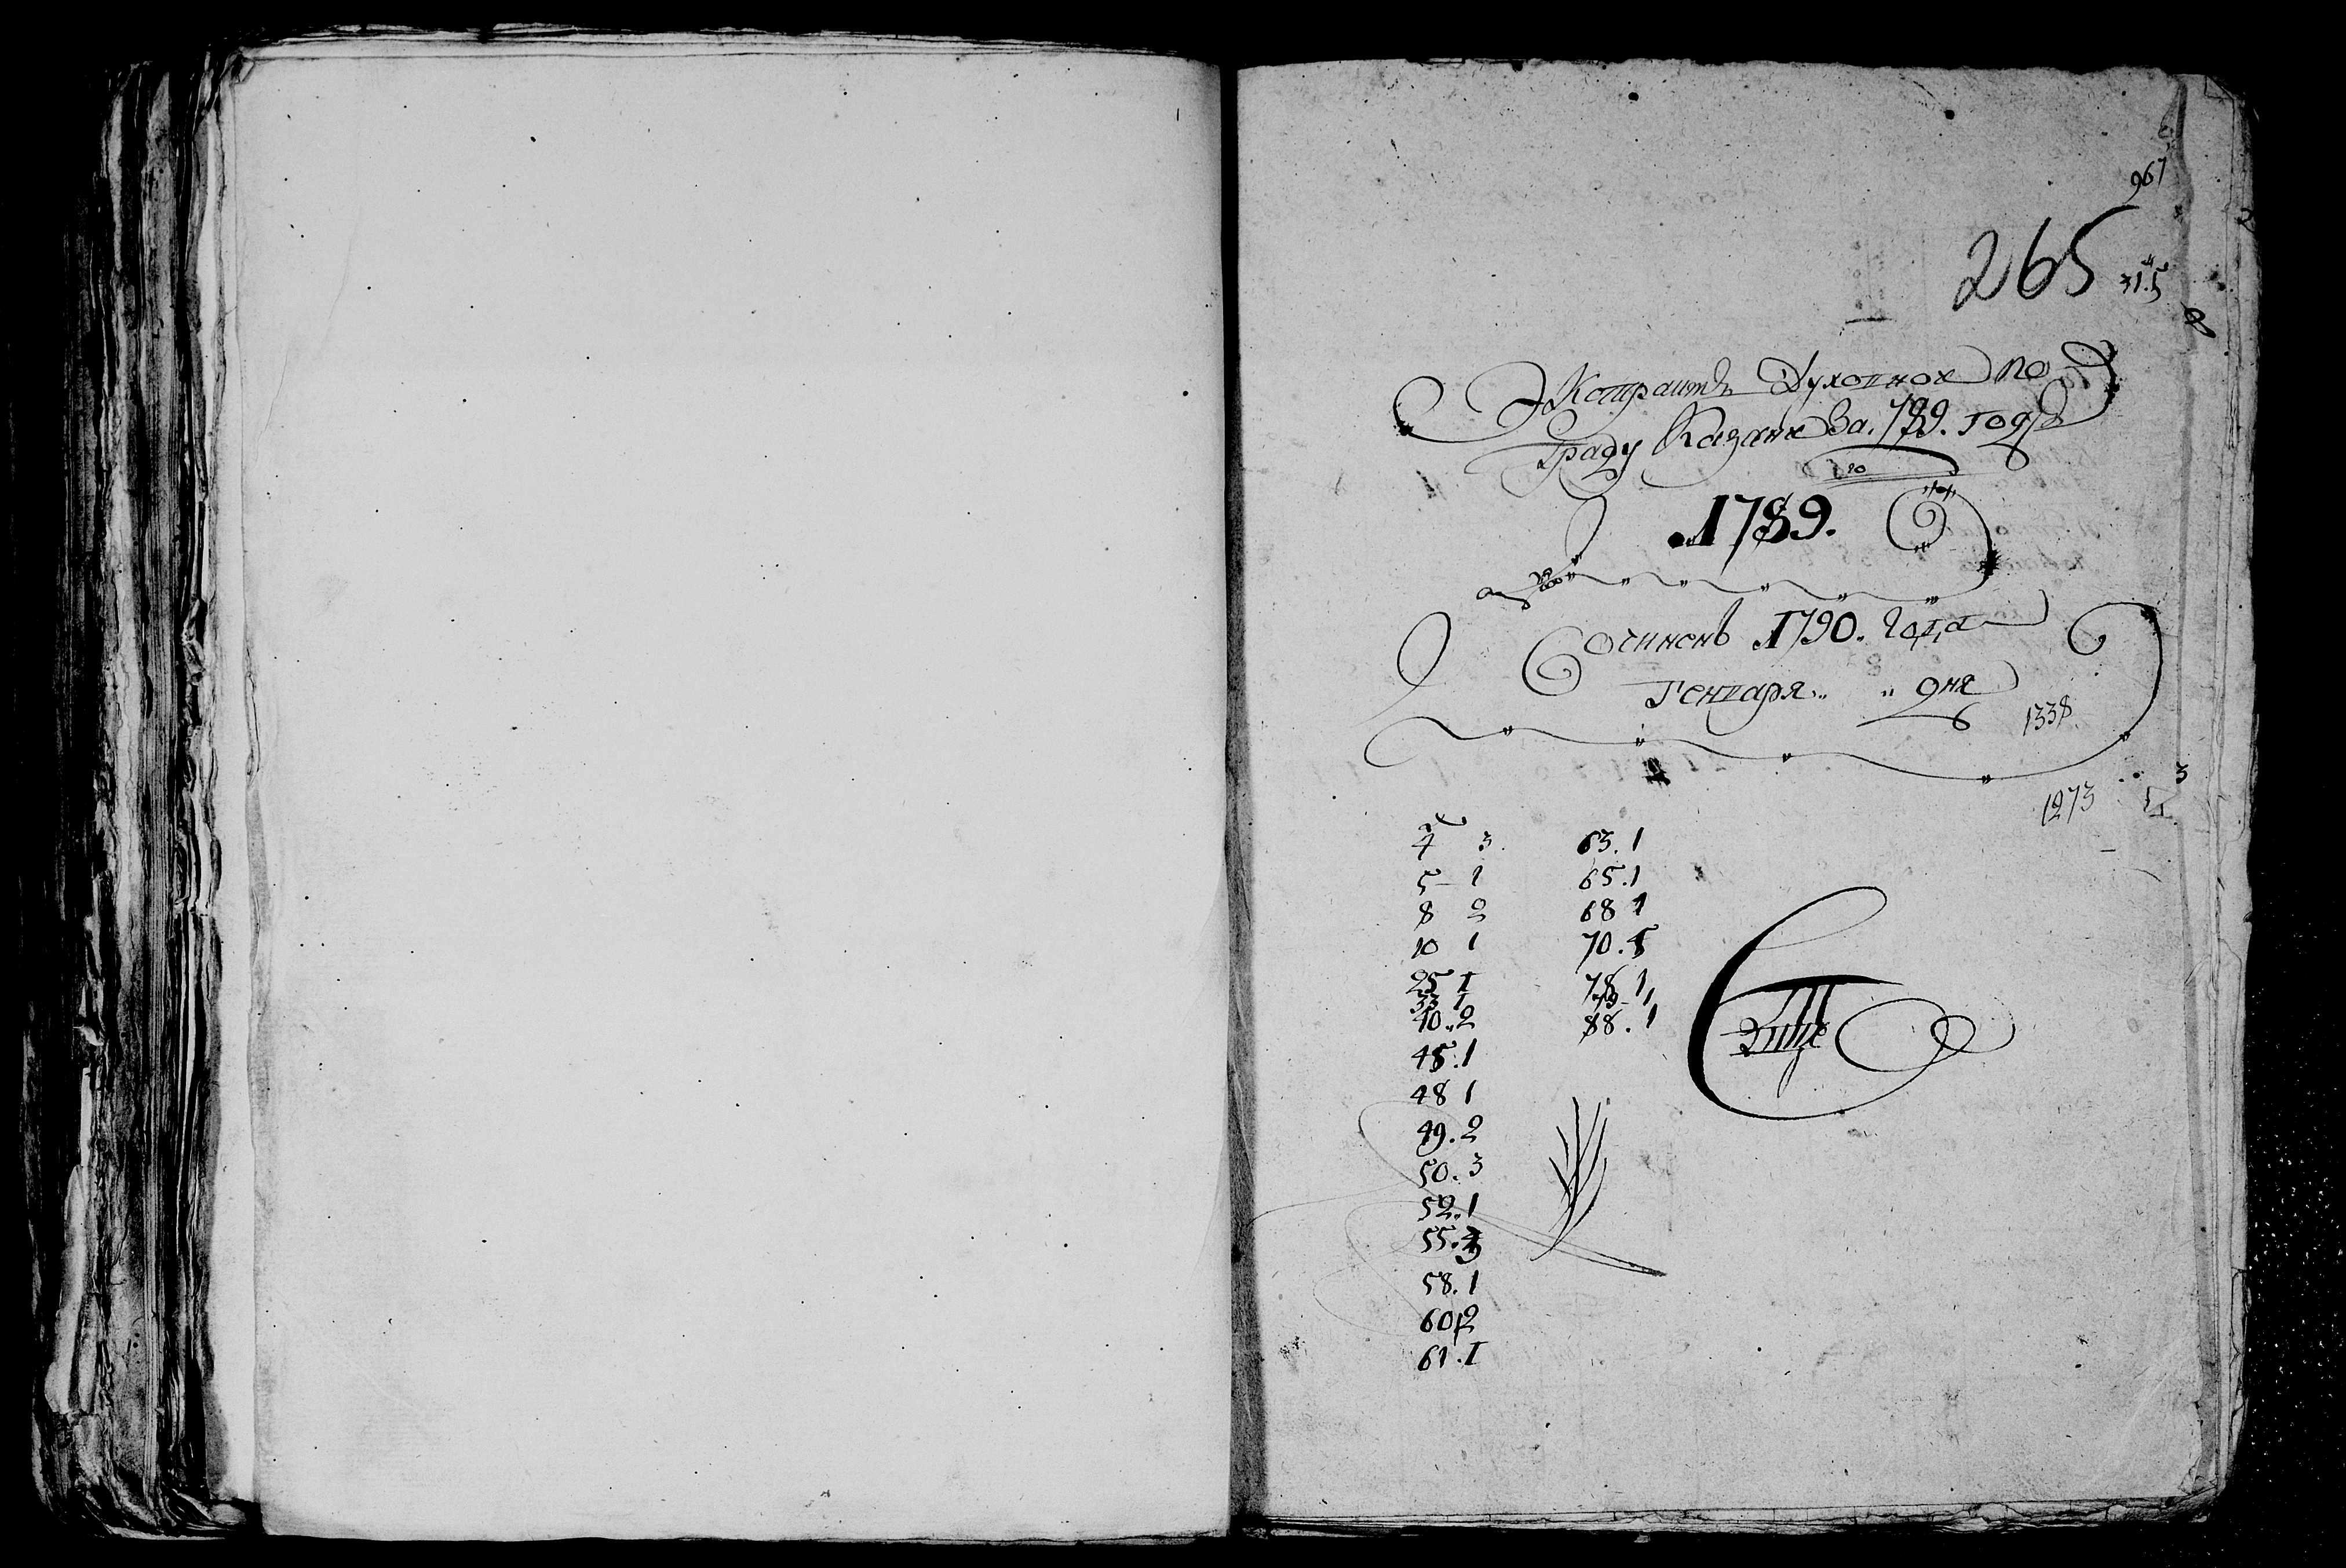 967
265 31.5
Экстрактъ Духовнох по
Граду Казане За. 789. годъ
.1789.
Сочиненъ 1790. года
Генваря " " дня
1338
1273
3
4 3. 63. 1
5 - 1 65. 1
8 2 68 1
10 1 70. 5
25 1 78 1
33 1 79 - 1
40. 2 88. 1
45. 1
48 1
49. 2
50. 3
52. 1
55. 3
58. 1
60 2
61. 1